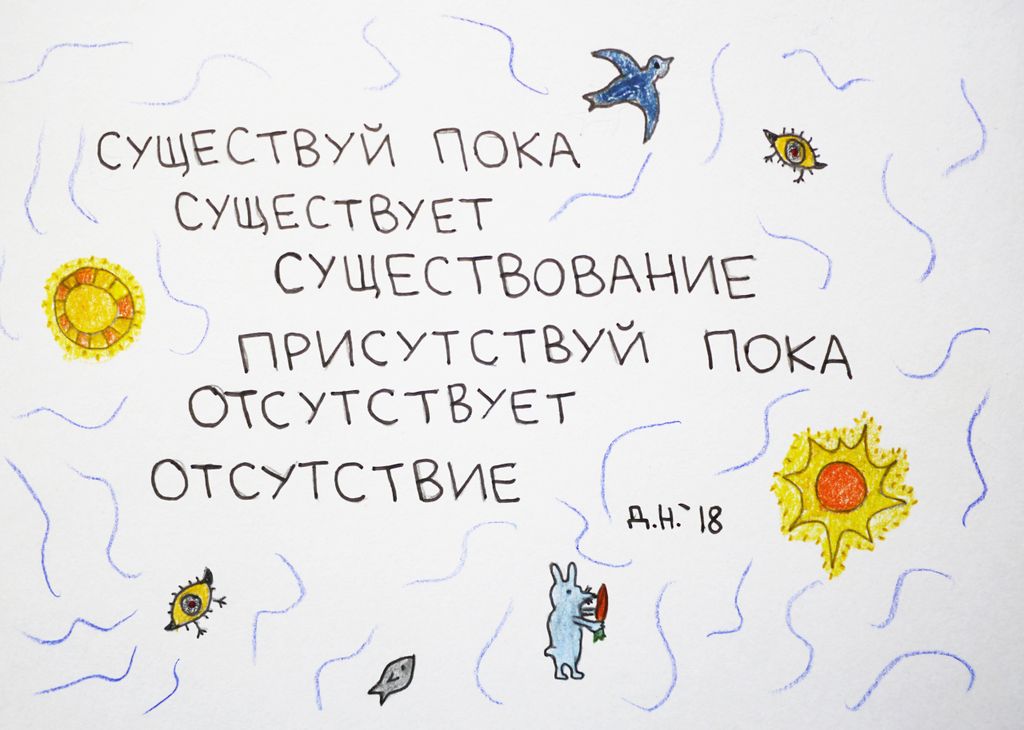 СУЩЕСТВУЙ ПОКА
СУЩЕСТВУЕТ
СУЩЕСТВОВАНИЕ
ПРИСУТСТВУЙ ПОКА
ОТСУТСТВУЕТ
ОТСУТСТВИЕ
Д.Н.`18